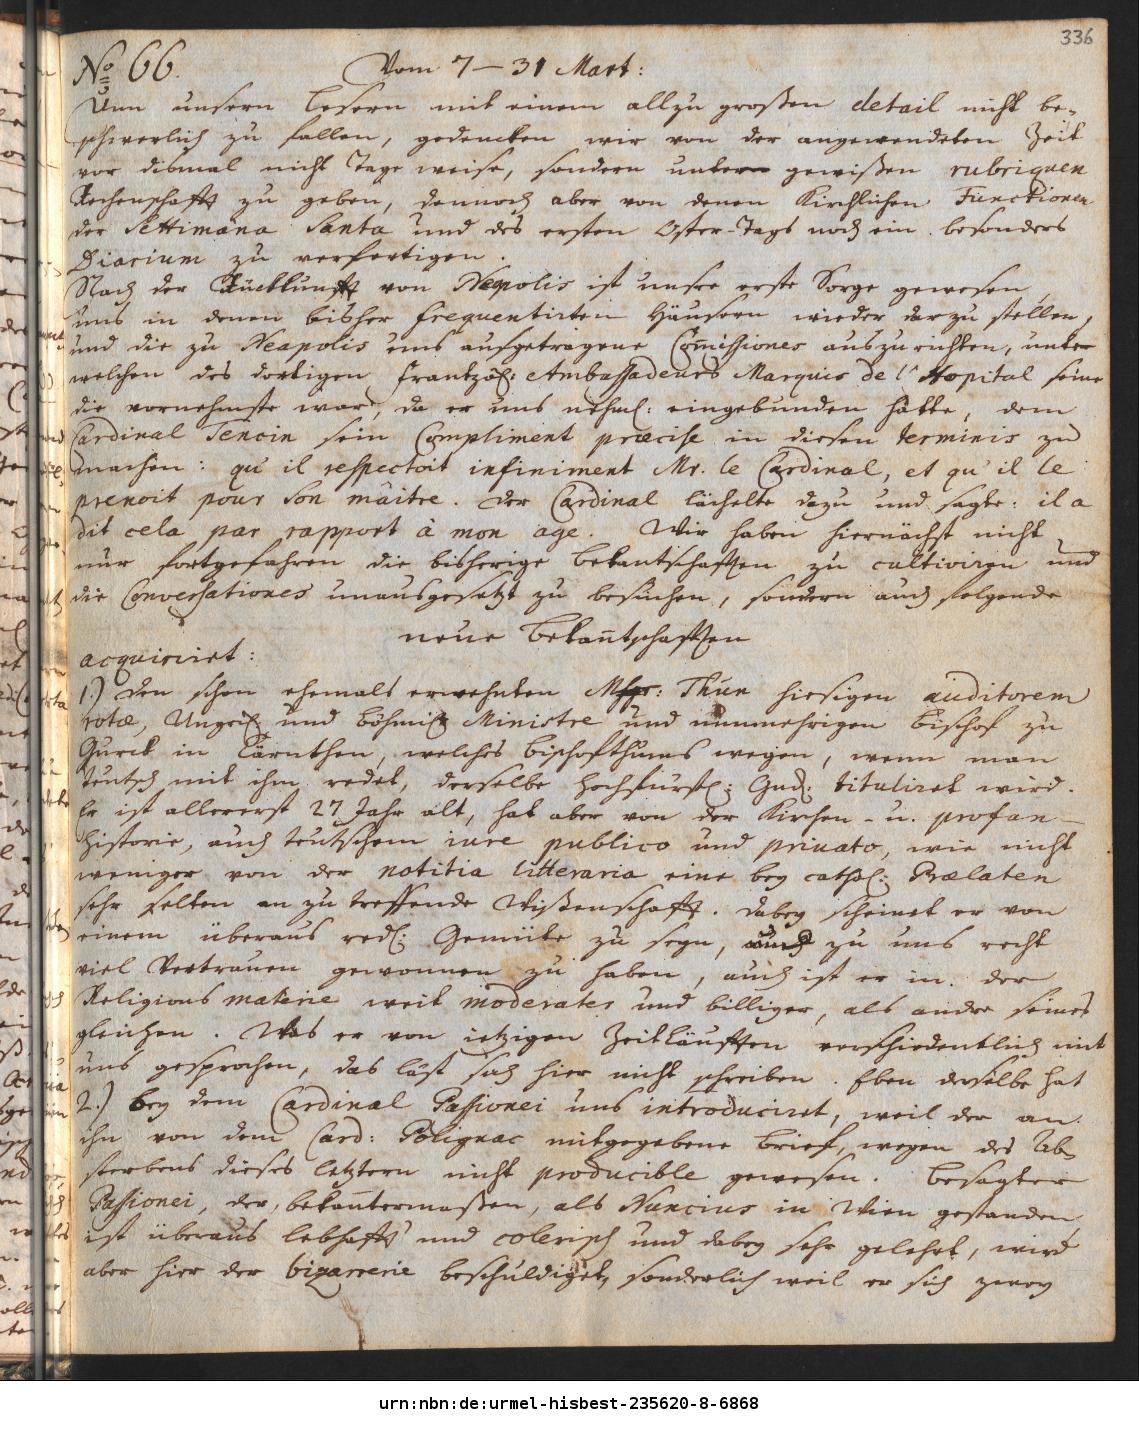 336
No 66. Vom 7 – 31 Mart:
Umb unsern Lesern mit einem allzu großen detail nicht be-
schwerlich zu fallen, gedencken wir von der angewendeten Zeit
vor dismal nicht Tage weise, sondern unter gewißen rubriquen
Rechenschafft zu geben, dennoch aber von denen Kirchlichen Functionen
der Settimana Santa und des ersten Oster-Tags noch ein besonders
Diarium zu verfertigen.
Nach der Rückkunfft von Neapolis ist unsre erste Sorge gewesen
uns in denen bisher frequentirten Häusern wieder darzustellen,
und die zu Neapolis uns aufgetragene Commissiones auszurichten, unter
welchen des dortigen Frantzös: Ambassadeurs Marquis de l'Hopital seine
die vornehmste war, da er uns nehml: eingebunden hatte, dem
Cardinal Tencin sein Compliment præcise in diesen terminis zu
machen: qu'il respectoit infiniment Mr. le Cardinal, et qu'il le
prenoit pour son màitre. Der Cardinal lächelte dazu und sagte: il a
dit cela par rapport à mon age. Wir haben hiernächst nicht
nur fortgefahren die bisherige Bekantschafften zu cultiviren und
die Conversationes unausgesetzt zu besuchen, sondern auch folgende
neue Bekantschafften
acquirirt:
1.) Den schon ehemals erwehnten Msgr: Thun hiesigen auditorem
rotæ, Ungris: und böhmis: Ministre und nunmehrigen Bischof zu
Gurck in Cärnthen, welches Bischofthums wegen, wenn man
teutsch mit ihm redet, derselbe Hochfürstl: Gnd: tituliret wird.
Er ist allererst 27 Jahr alt, hat aber von der Kirchen- u. profan-
Historie, auch teutschem iure publico und privato, wie nicht
weniger von der notitia litteraria eine bey cathol: Prælaten
sehr selten anzutreffende Wißenschafft. Dabey scheinet er von
einem überaus redl: Gemüthe zu seyn, zu uns recht
viel Vertrauen gewonnen zu haben, auch ist er in der
Religions materie weit moderater und billiger, als andre seines
gleichen. Was er von ietzigen Zeitläufften verschiedentlich mit
uns gesprochen, das läst sich hier nicht schreiben. Eben derselbe hat
2.) bey dem Cardinal Passionei uns introduciret, weil der an
ihn von dem Card: Polignac mitgegebene Brief, wegen des Ab-
sterbens dieses letztern nicht producible gewesen. Besagter
Passionei, der, bekantermaßen, als Nuncius in Wien gestanden,
ist überaus lebhafft und colerisch und dabey sehr gelehrt, wird
aber hier der bizarrerie beschuldiget, sonderlich weil er sich zwey
urn:nbn:de:urmel-hisbest-235620-8-6868